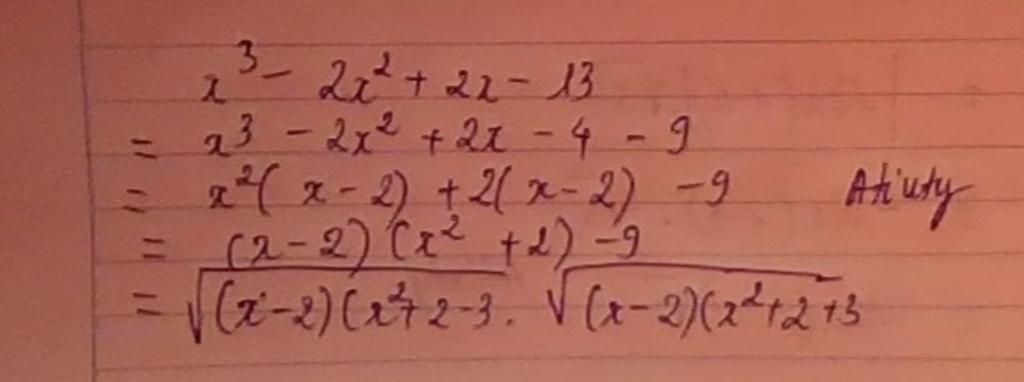 x³ - 2x² + 2x - 13
= x³ - 2x² + 2x - 4 - 9
= x²( x - 2) + 2( x - 2) - 9
= (x - 2) (x² + 2) - 9
= √(x - 2)(x² + 2 - 3 . √(x - 2)(x² + 2 + 3